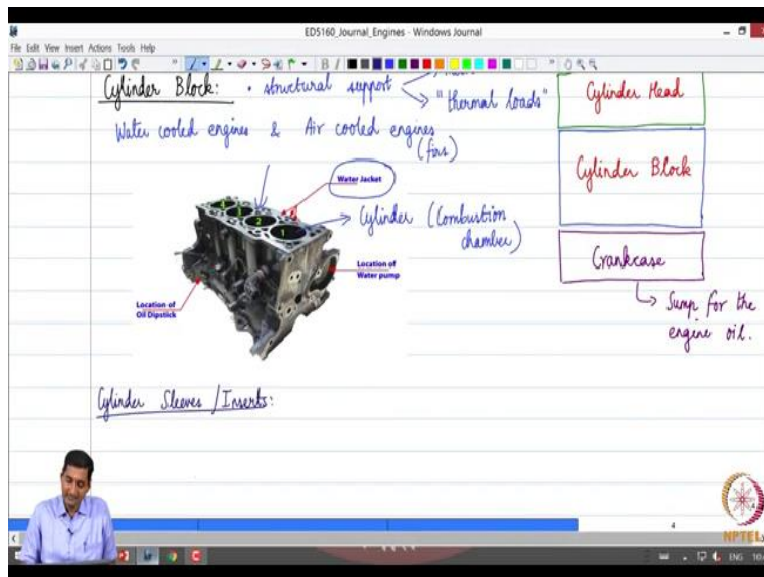 ED5160_Journal_Engines - Windows Journal
File Edit View Insert Actions Tools Help
Cylinder Block: • structural support
"thermal loads"
Water cooled engines & Air cooled engines
(fins)
Water Jacket
Cylinder (Combustion
chamber)
4
3
2
1
Location of
Water pump
Location of
Oil Dipstick
Cylinder Head
Cylinder Block
Crankcase
Sump for the
engine oil.
Cylinder Sleeves / Inserts:
4
NPTEL
ENG